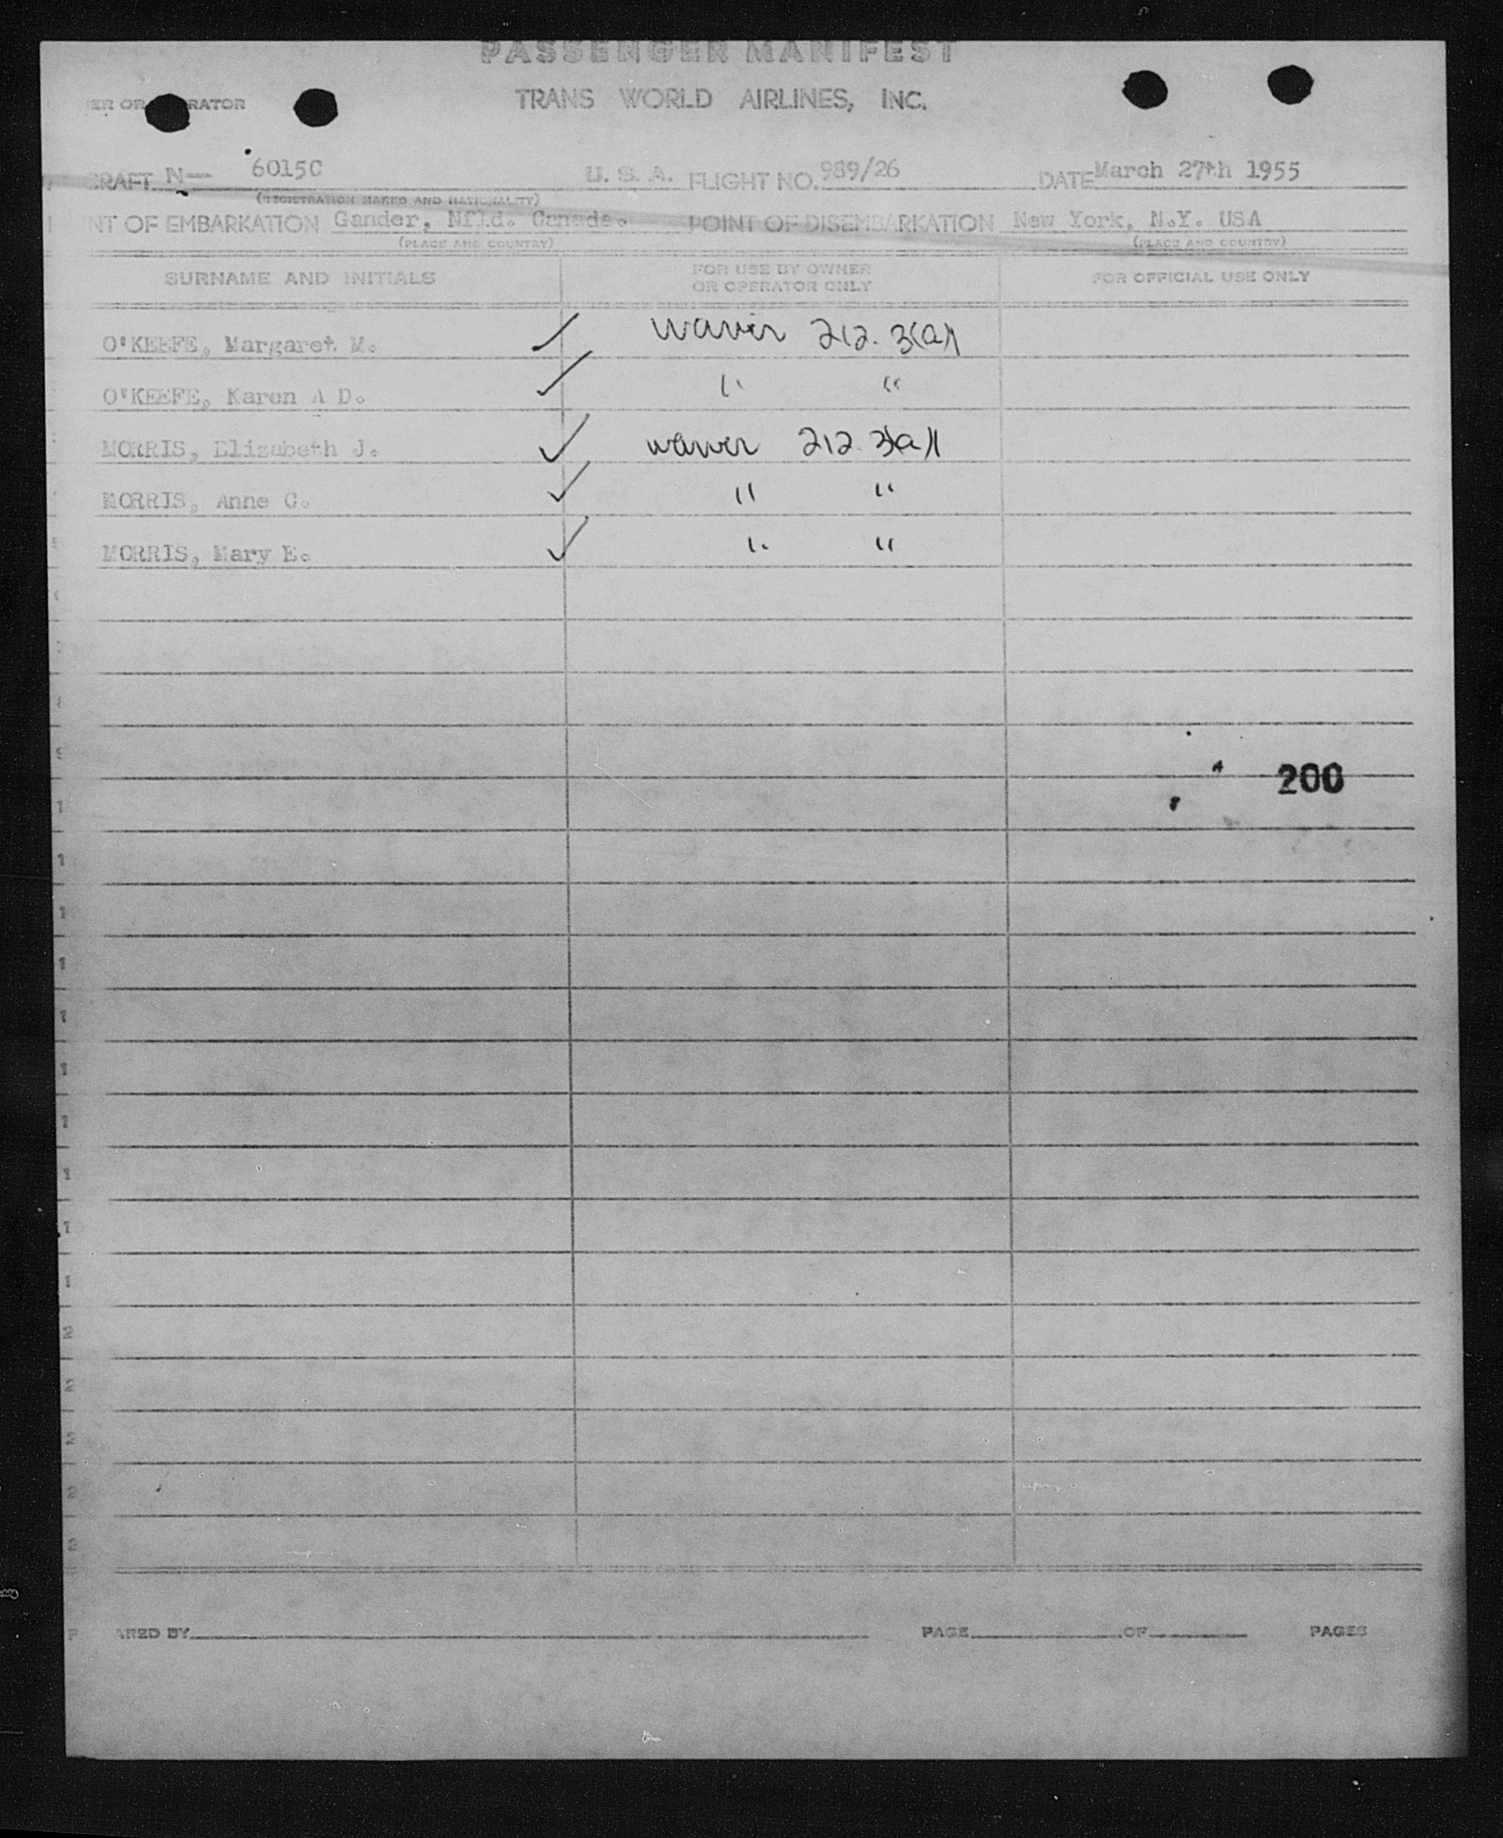 PASSENGER MANIFEST
ER OR RATOR TRANS WORLD AIRLINES, INC.
CRAFT N— 6015C U. S. A. FLIGHT NO. 989/26 DATE March 27th 1955
(REGISTRATION MARKS AND NATIONALITY)
NT OF EMBARKATION Gander, Nfld. Canada. POINT OF DISEMBARKATION New York, N.Y. USA
(PLACE AND COUNTRY) (PLACE AND COUNTRY)
SURNAME AND INITIALS FOR USE BY OWNER OR OPERATOR ONLY FOR OFFICIAL USE ONLY
O'KEEFE, Margaret M. ✓ waver 212. 3(a)
O'KEEFE, Karen A D. ✓ " "
MORRIS, Elizabeth J. ✓ waver 212. 3(a)
MORRIS, Anne C. ✓ " "
MORRIS, Mary E. ✓ " "
200
ARED BY PAGE OF PAGES